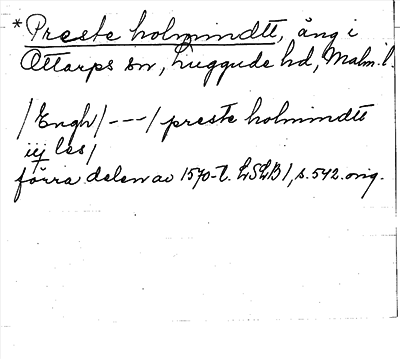 *Preste holmindtt, äng i
Ottarps sn, Luggude hd, Malm. l.
/Engh/---/preste holmindtt
iij les/
förra delen av 1570-t. LSLB1, s. 542. orig.